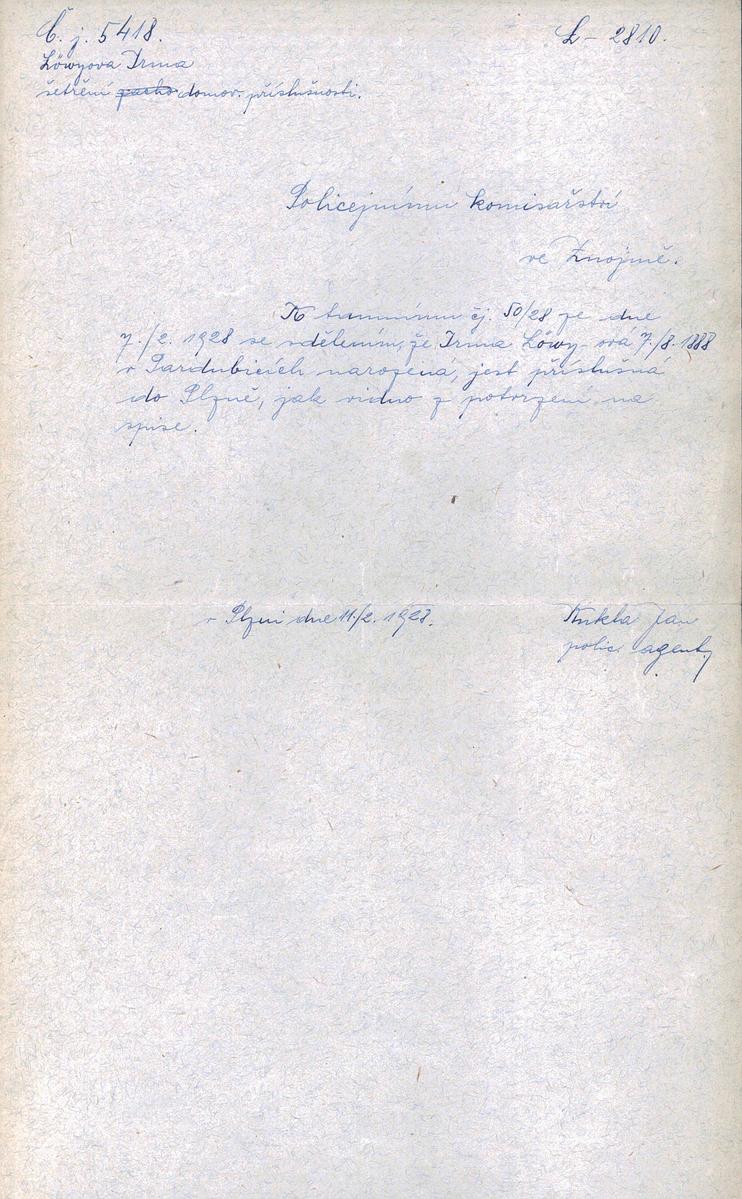 Č. j. 5418.
L – 2810.
Löwyova Irma
šetření domov. příslušnosti.
Policejnímu komisařství
ve Znojmě.
K tamnímu čj. 50/28 ze dne
7./2. 1928 se sdělením, že Irma Löwy-ová 7./8. 1888
v Pardubicích narozená, jest příslušna
do Plzně, jak vidno z potvrzení na
spise.
v Plzni dne 11./2. 1928.
Kukla Jan
polic. agent.